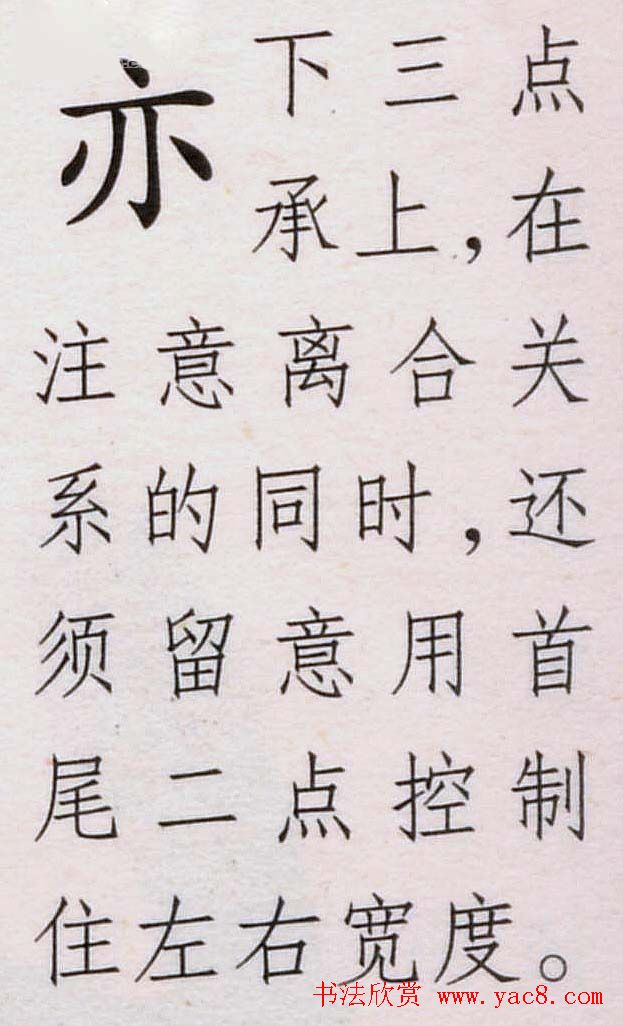 亦
下三点
承上，在
注意离合关
系的同时，还
须留意用首
尾二点控制
住左右宽度。
书法欣赏 www.yac8.com